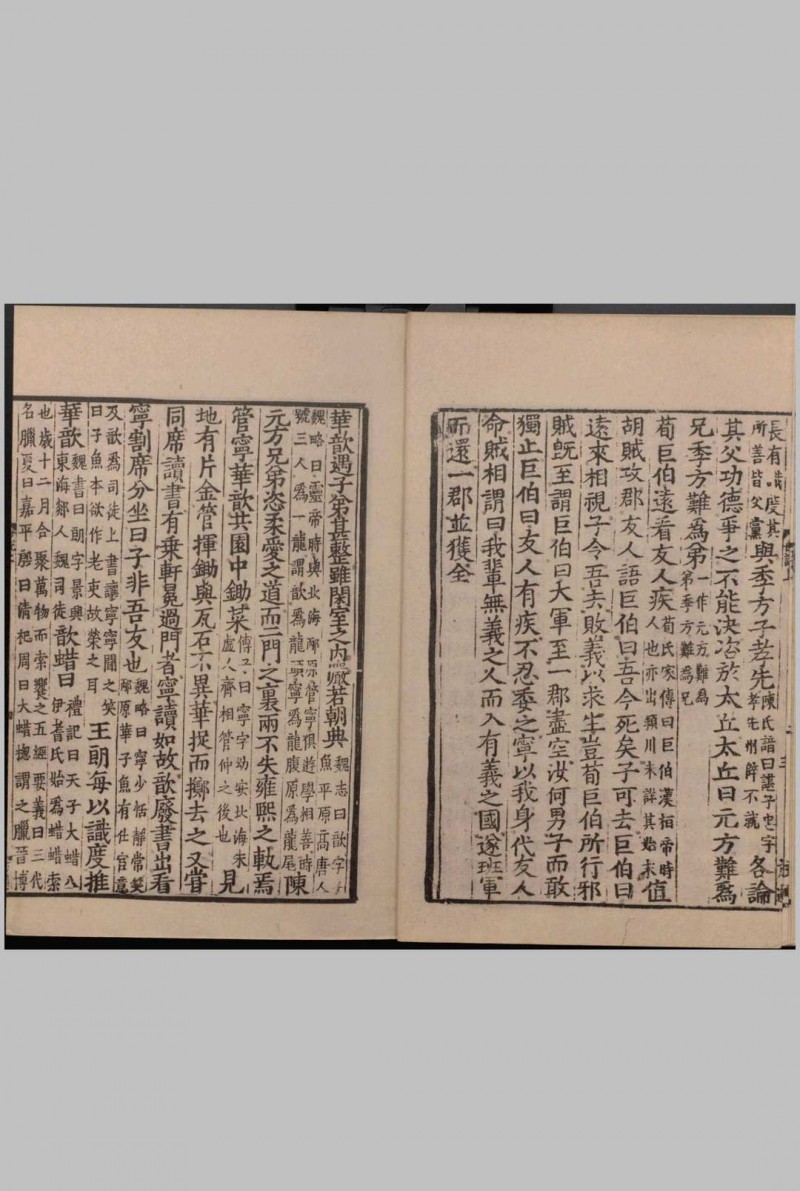 長有識度其所善皆父黨與季方子孝先陳氏譜曰諶子忠字孝先州辟不就各論
其父功德爭之不能決咨於太丘太丘曰元方難爲
兄季方難爲弟一作元方難爲弟季方難爲兄
荀巨伯遠看友人疾荀氏家傳曰巨伯漢桓帝時人也亦出潁川未詳其始末值
胡賊攻郡友人語巨伯曰吾今死矣子可去巨伯曰
遠來相視子令吾去敗義以求生豈荀巨伯所行邪
賊旣至謂巨伯曰大軍至一郡盡空汝何男子而敢
獨止巨伯曰友人有疾不忍委之寧以我身代友人
命賊相謂曰我輩無義之人而入有義之國遂班軍
而還一郡並獲全
華歆遇子弟甚整雖閑室之內儼若朝典魏志曰歆字子魚平原高唐人
魏略曰靈帝時與北海邴原管寧俱遊學相善時號三人爲一龍謂歆爲龍頭寧爲龍腹原爲龍尾陳
元方兄弟恣柔愛之道而二門之裏兩不失雍熙之軌焉
管寧華歆共園中鋤菜傅子曰寧字幼安北海朱虛人齊相管仲之後也見
地有片金管揮鋤與瓦石不異華捉而擲去之又嘗
同席讀書有乗軒冕過門者寧讀如故歆廢書出看
寧割席分坐曰子非吾友也魏略曰寧少恬靜常笑邴原華子魚有仕宦意
及歆爲司徒上書讓寧寧聞之笑曰子魚本欲作老吏故榮之耳王朗每以識度推
華歆魏書曰朗字景興東海郯人魏司徒歆蜡日禮記曰天子大蜡八伊耆氏始爲蜡蜡索
也歲十二月合聚萬物而索饗之五經要義曰三代名臘夏曰嘉平殷曰清祀周曰大蜡揔謂之臘晉博